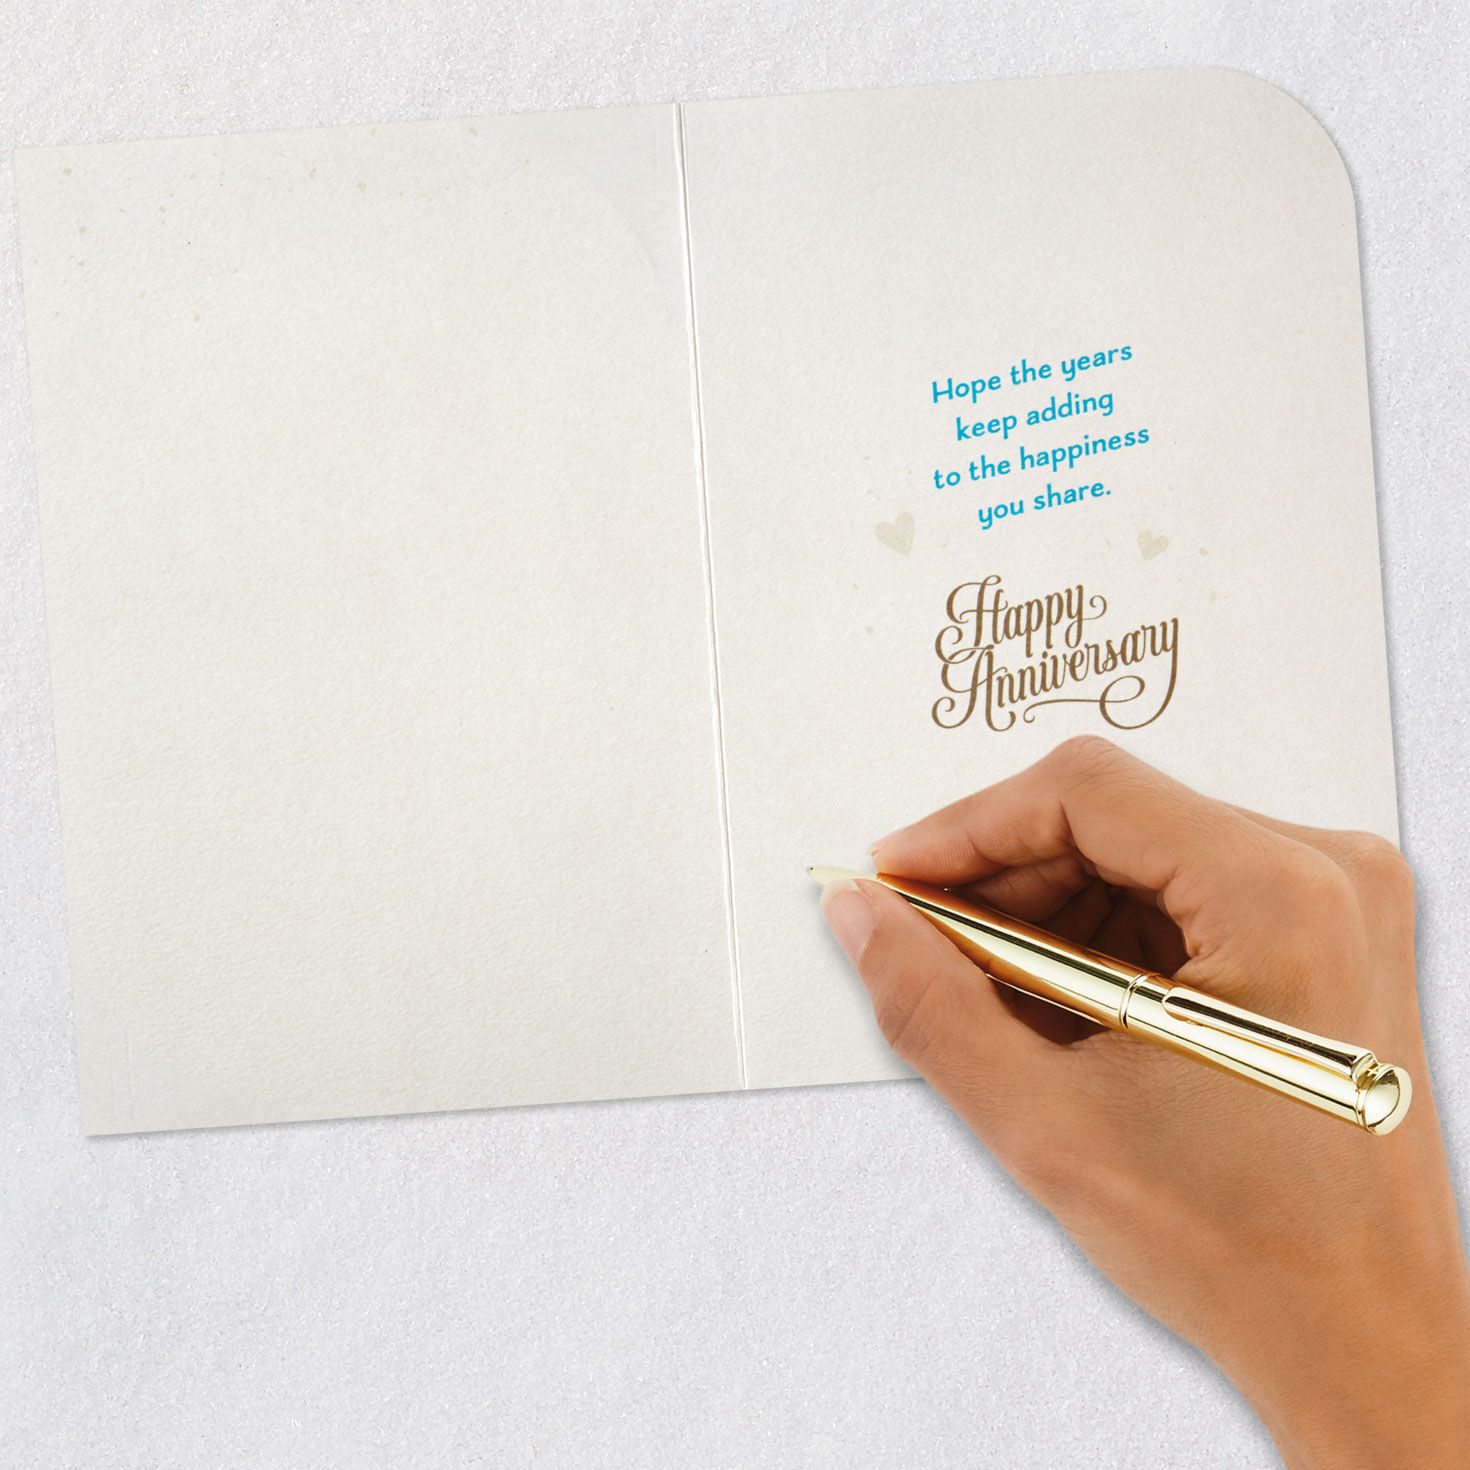 Hope the years
keep adding
to the happiness
you share.
Happy
Anniversary